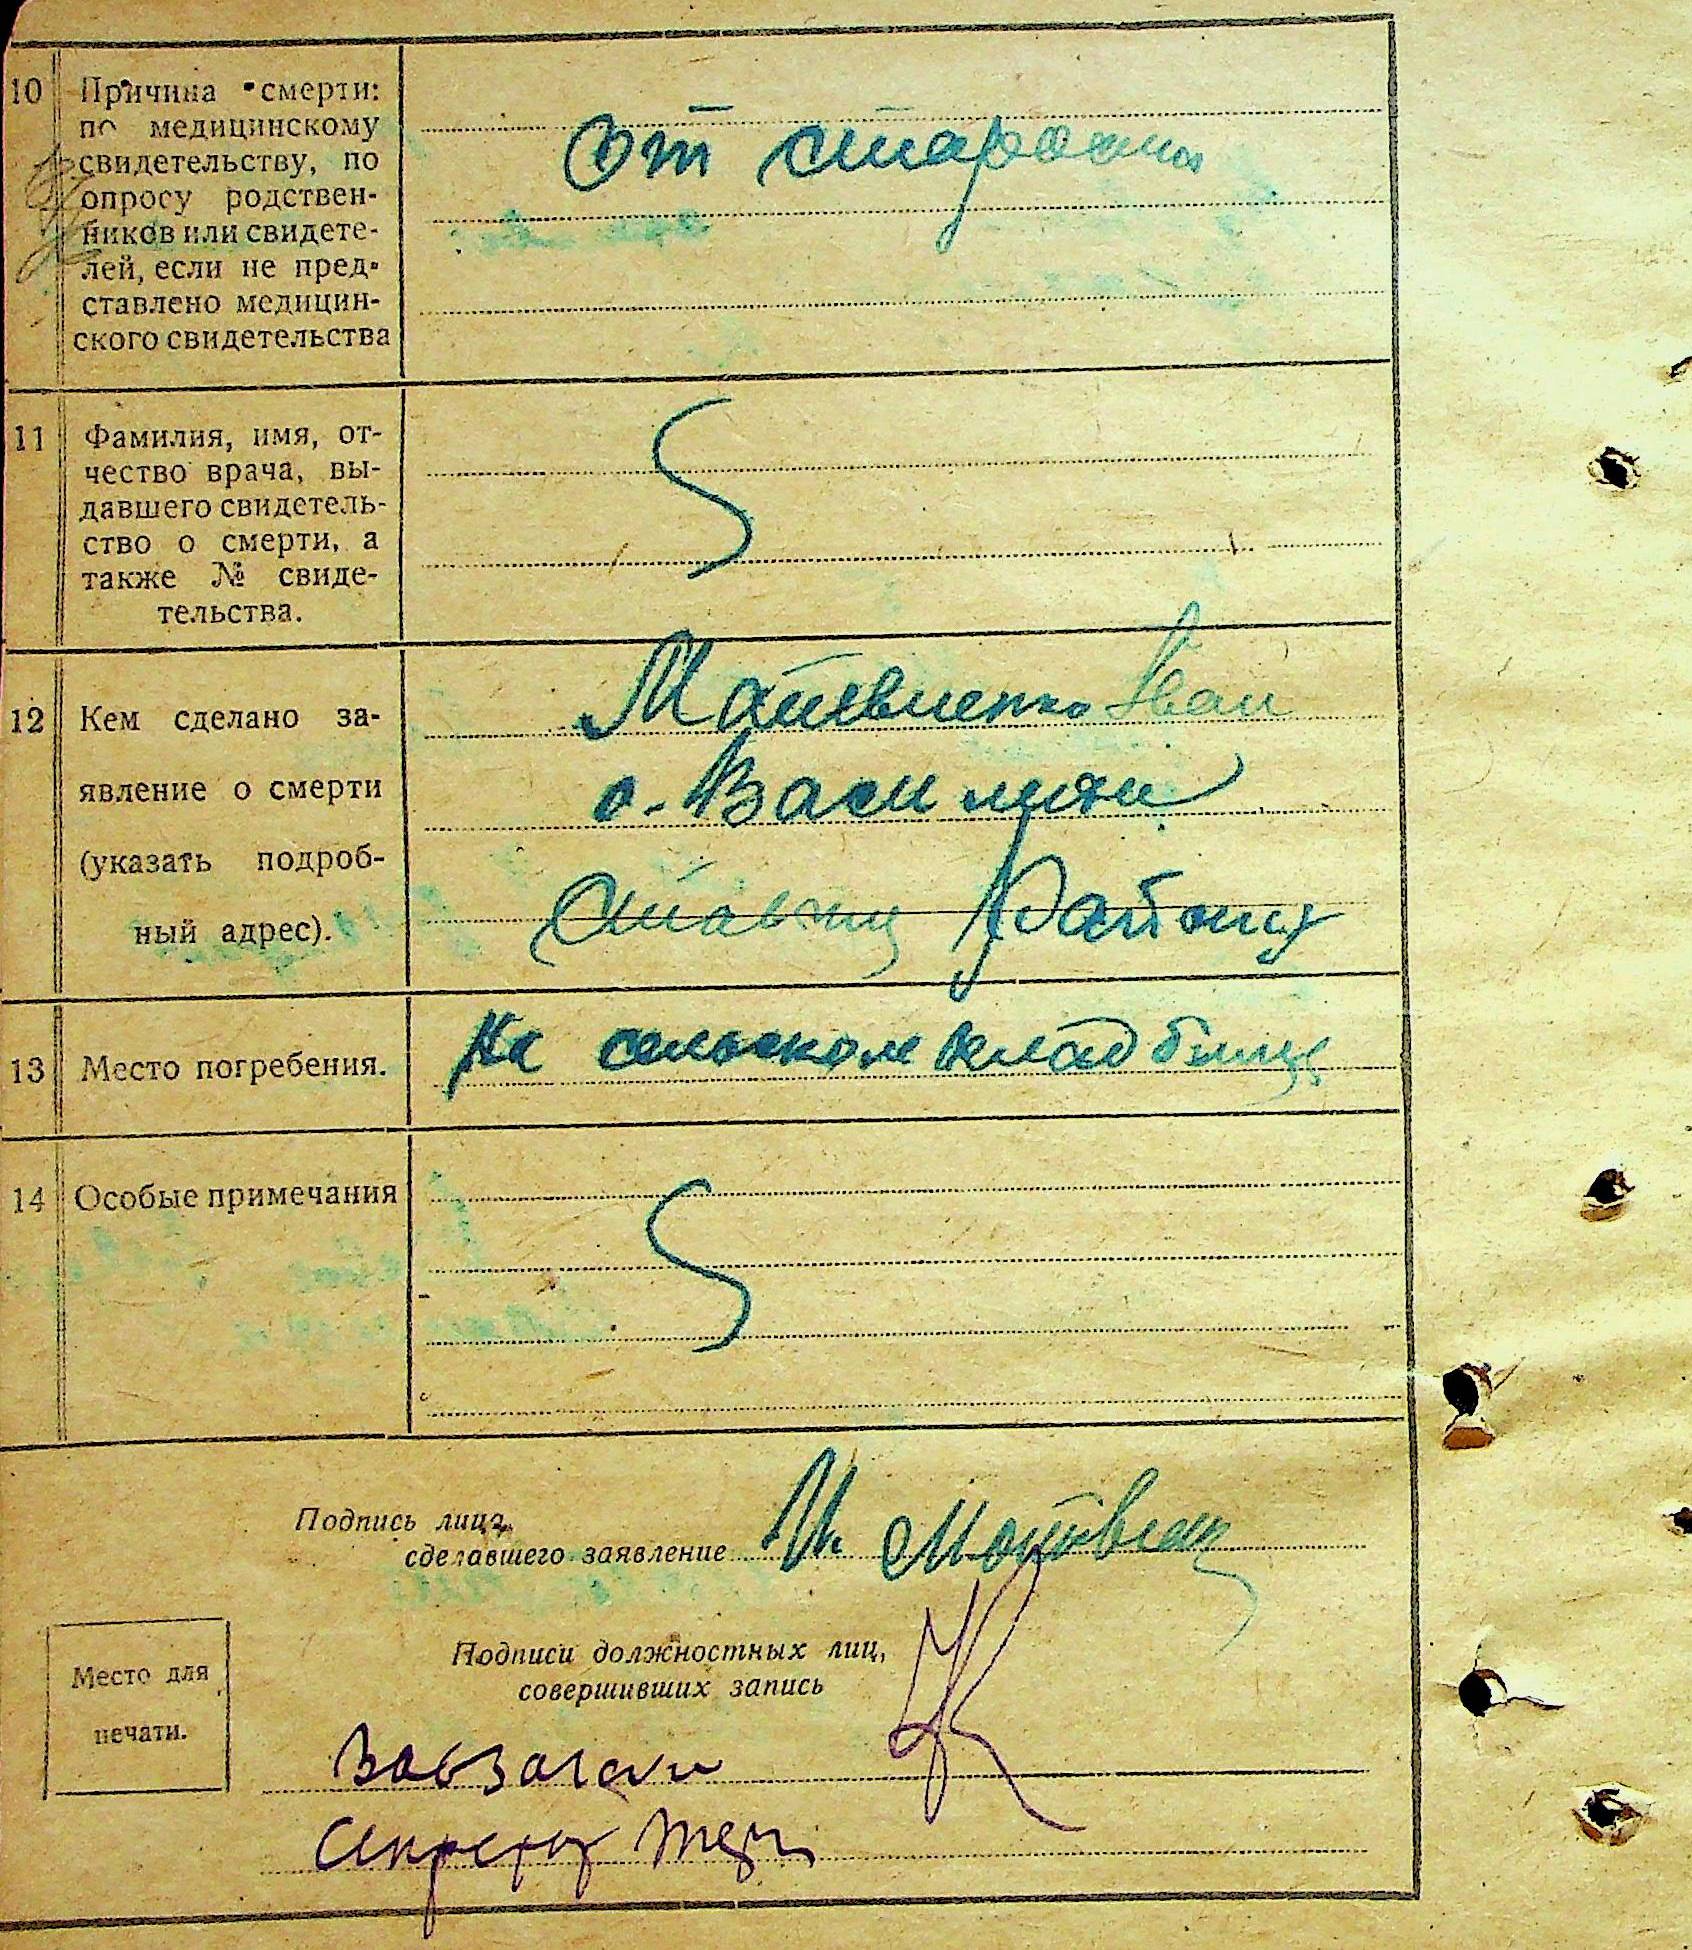 10 Причина смерти:
по медицинскому
свидетельству, по
опросу родствен-
ников или свидете-
лей, если не пред-
ставлено медицин-
ского свидетельства
От старости
11 Фамилия, имя, от-
чество врача, вы-
давшего свидетель-
ство о смерти, а
также № свиде-
тельства.
12 Кем сделано за-
явление о смерти
(указать подроб-
ный адрес).
Матвиенко Иван
району
13 Место погребения.
На сельском кладбище
14 Особые примечания
Подпись лица,
сделавшего заявление
Подписи должностных лиц,
совершивших запись
Место для
печати.